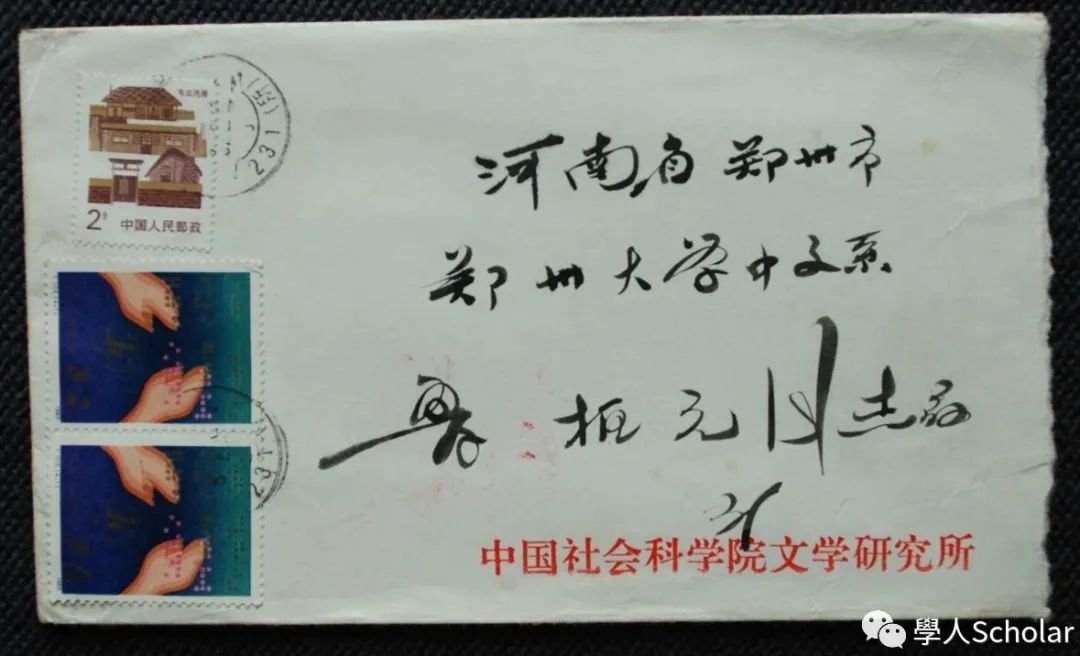 东北民居
2分
中国人民邮政
231
河南省郑州市
郑州大学中文系
鲁枢元同志
中国社会科学院文学研究所
231
學人Scholar